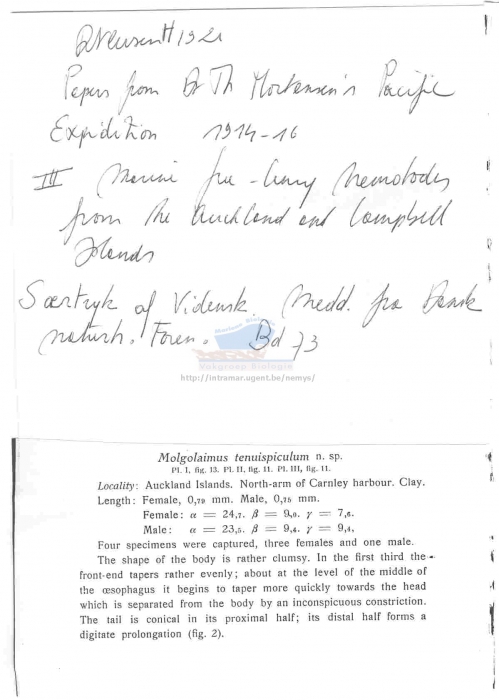 Ditlevsen H 1921
Papers from Dr Th Mortensen's Pacific
Expedition 1914-16
III Marine free-living Nematodes
from the Auckland and Campbell
Islands
Særtryk af Vidensk. Medd. fra Dansk
naturh. Foren. Bd 73
Vakgroep Biologie
http://intramar.ugent.be/nemys/
Molgolaimus tenuispiculum n. sp.
Pl. I, fig. 13. Pl. II, fig. 11. Pl. III, fig. 11.
Locality: Auckland Islands. North-arm of Carnley harbour. Clay.
Length: Female, 0,79 mm. Male, 0,75 mm.
Female: α = 24,7. β = 9,0. γ = 7,6.
Male: α = 23,5. β = 9,4. γ = 9,4,
Four specimens were captured, three females and one male.
The shape of the body is rather clumsy. In the first third the
front-end tapers rather evenly; about at the level of the middle of
the œsophagus it begins to taper more quickly towards the head
which is separated from the body by an inconspicuous constriction.
The tail is conical in its proximal half; its distal half forms a
digitate prolongation (fig. 2).